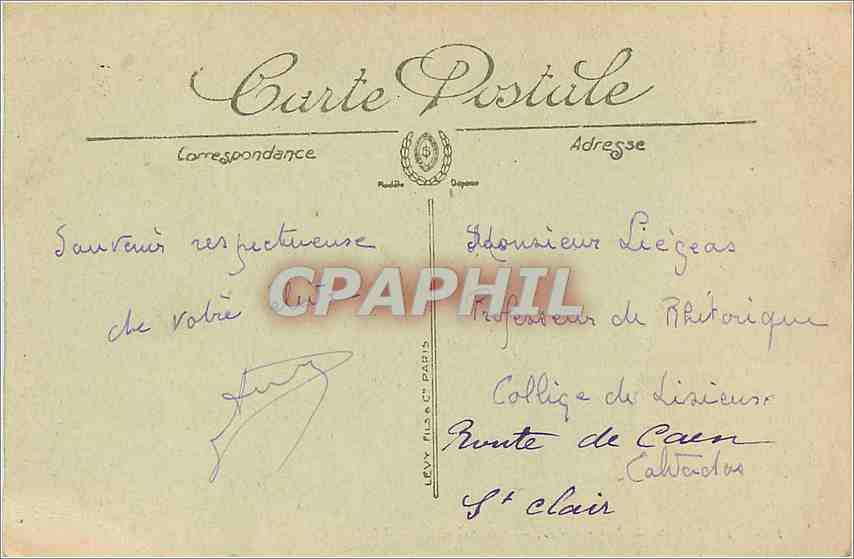 Carte Postale
Correspondance
Adresse
Modèle Déposé
Souvenir respectueuse
de votre
Monsieur Liégeas
Professeur de Rhétorique
Collège de Lisieux
Route de Caen
Calvados
St Clair
LÉVY FILS & Cie PARIS
CPAPHIL